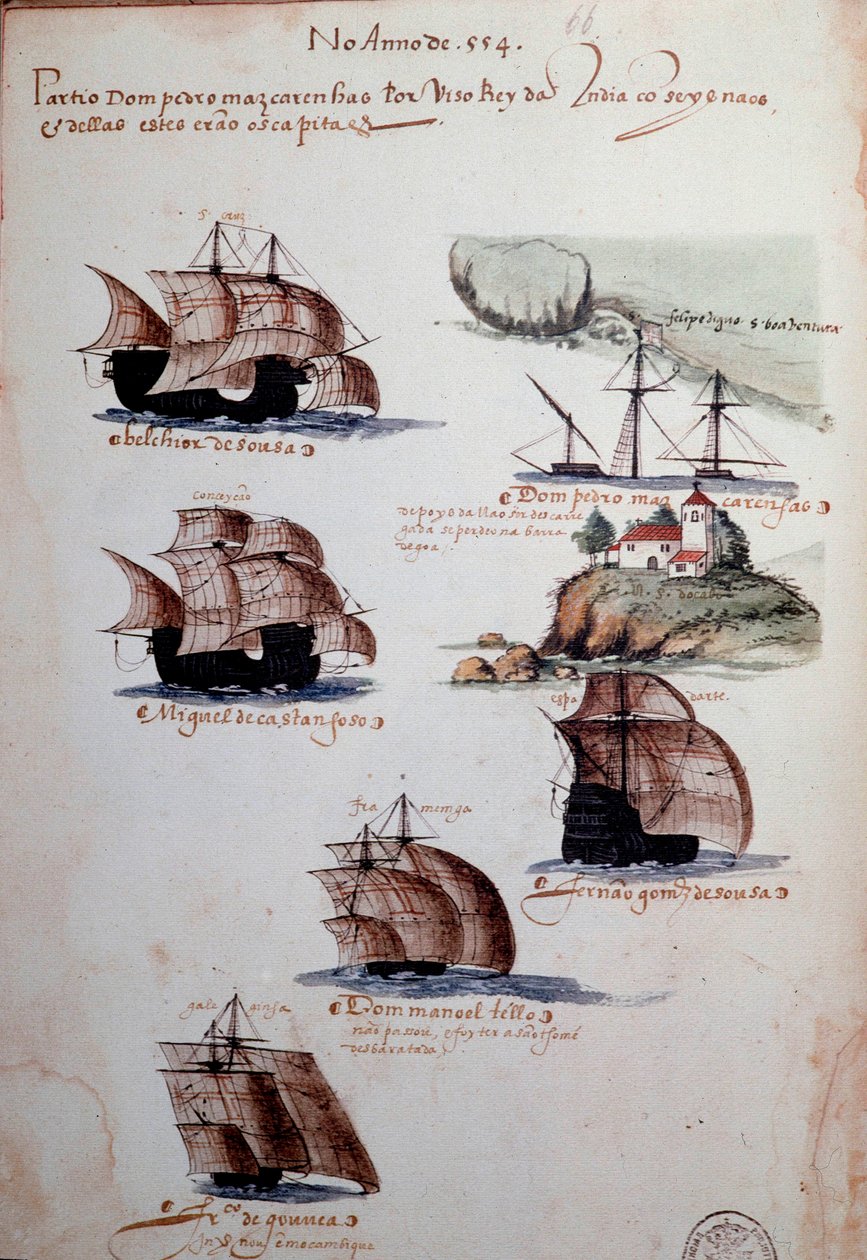 66
No Anno de .554.
Partio Dom pedro mazcarenhas Por Viso Rey da India cõ seys naos,
& dellas estes erão os capitaẽs
S. Cruz
S. felipe diguo S. boaventura
belchior de sousa
Dom pedro maz carenhas
depoys da Nao ser descarre
gada se perdeo na barra
de goa
Conceyção
N. S. do cabo
Miguel de castanhoso
espa darte.
Fernão gomz de sousa
fra memga
Dom manoel tello
não passou, e foy ter a são thomé
desbaratada
gale ginha
Frco de gouvea
Inv̄nou ẽ mocambique